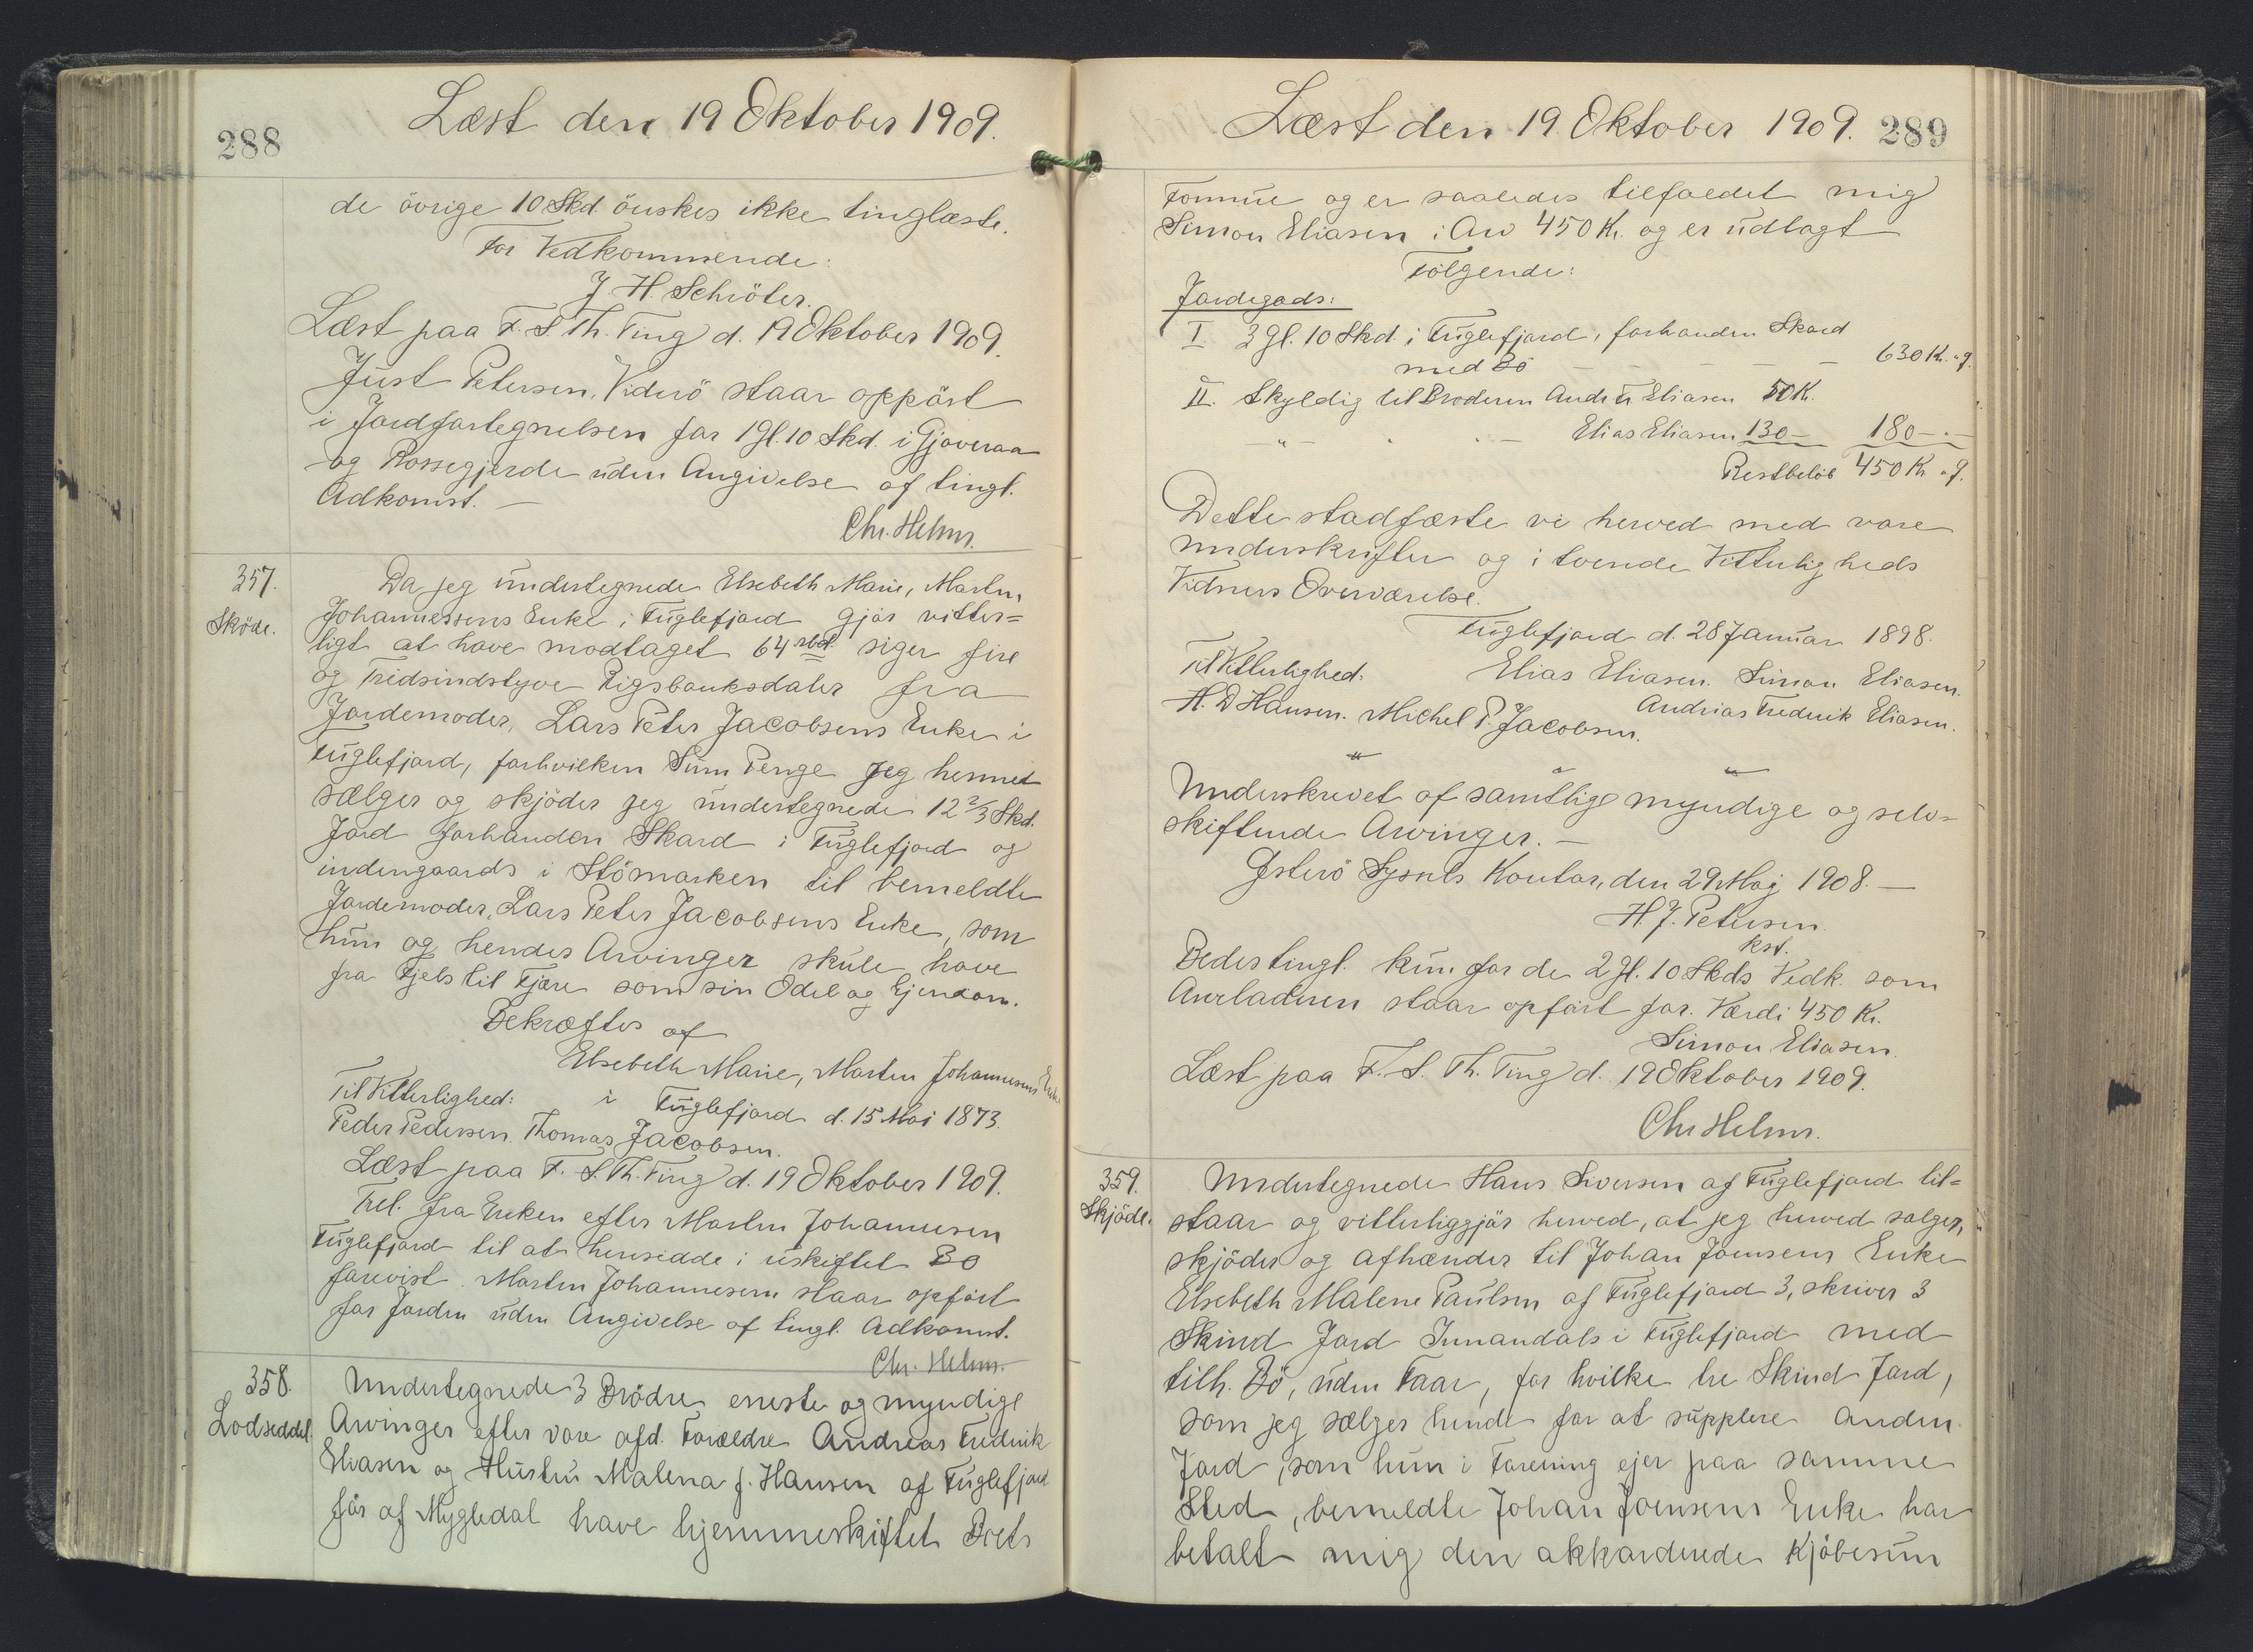 288
Læst den 19 Oktober 1909.
de övrige 10 Skd. önskes ikke tinglæste.
For Vedkommende:
J. H. Schröter.
Læst paa F. S. Th. Ting d. 19 Oktober 1909.
Just Petersen, Viderö staar oppört
i Jordfortegnelsen for 1 Gl. 10 Skd. i Gjoveraa
og Rossegjerde uden Angivelse af tingl.
Adkomst. —
Chr. Helms.
357.
Sköde.
Da jeg undertegnede Elsebeth Marie, Martin
Johannessens Enke i Fuglefjord gjör vitter=
ligt at have modtaget 64 rbd. siger fire
og Tredsindstyve Rigsbanksdaler fra
Jordemoder, Lars Peter Jacobsens Enke i
Fuglefjord, forhvilken Sum Penge jeg hermed
sælger og skjöder jeg undertegnede 12 2/3 Skd.
Jord forhanden Skard i Fuglefjord og
indengaards i Stömarken til bemeldte
Jordemoder, Lars Peter Jacobsens Enke, som
hun og hendes Arvinger skule have
fra Fjels til Fjære som sin Odel og Ejendom.
Bekræftes af
Elsebeth Marie, Martin Johannesens Enke
Til Vitterlighed: i Fuglefjord d. 15 Mai 1873.
Peder Pedersen. Thomas Jacobsen.
Læst paa F. S. Th. Ting d. 19 Oktober 1909.
Ret. fra Enken efter Martin Johannesen
Fuglefjord til at hensidde i uskiftet Bo
forevist. Martin Johannesen staar opfört
for Jorden uden Angivelse af tingl. Adkomst.
Chr. Helms.
358.
Lodseddel.
Undertegnede 3 Brödre eneste og myndige
Arvinger efter vore afd. Forældre Andreas Fredrik
Eliasen og Hustru Malena f. Hansen af Fuglefjord
för af Mygledal have hjemmeskiftet Boets
Læst den 19. Oktober 1909.
289
Formue og er saaledes tilfaldet mig
Simon Eliasen i Arv 450 Kr. og er udlagt
Fölgende:
Jordegods:
I. 3 Gl. 10 Skd. i Fuglefjord, forhanden Skard
med Bö — — — — — 630 Kr. " Ø.
II. Skyldig til Broderen Andr. Fr. Eliasen 50 K.
— " — " " — Elias Eliasen 130 — 180 - " -
Restbelöb 450 Kr " Ø.
Dette stadfæste vi herved med vore
Underskrifter og i tvende Vitterligheds
Vidners Overværelse.
Fuglefjord d. 28 Januar 1898.
Til Vitterlighed. Elias Eliasen. Simon Eliasen.
H. D Hansen. Michel P. Jacobsen. Andrias Frederik Eliasen.
" " "
Underskrevet af samtlige myndige og selv=
skiftende Arvinger. —
Østerö Syssels Kontor, den 29 Maj 1908. —
H. J. Petersen.
kst.
Bedes tingl. kun for de 2 Gl. 10 Skds Vedk. som
Arveladeren staar opfört for. Værdi 450 Kr.
Simon Eliasen.
Læst paa F. S. Th. Ting d. 19 Oktober 1909.
Chr Helms.
359.
Skjöde.
Undertegnede Hans Siversen af Fuglefjord til=
staar og vitterliggjör herved, at jeg herved sælger,
skjöder og afhænder til Johan Joensens Enke
Elsebeth Malene Paulsen af Fuglefjord 3, skriver 3
Skind Jord Innandals i Fuglefjord med
tilh. Bö, uden Faar, for hvilke tre Skind Jord,
som jeg sælger hende for at supplere anden
Jord, som hun i Forening ejer paa samme
Sted, bemeldte Johan Joensens Enke har
betalt mig den akkorderede Kjöbesum